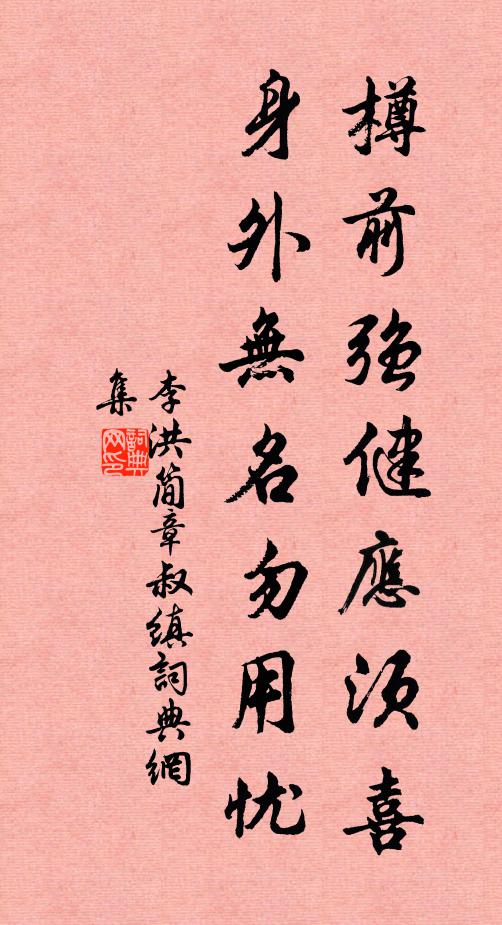 樽前強健應須喜
身外無名勿用忧
李洪簡章叔縝詞典網
集
詞典网印